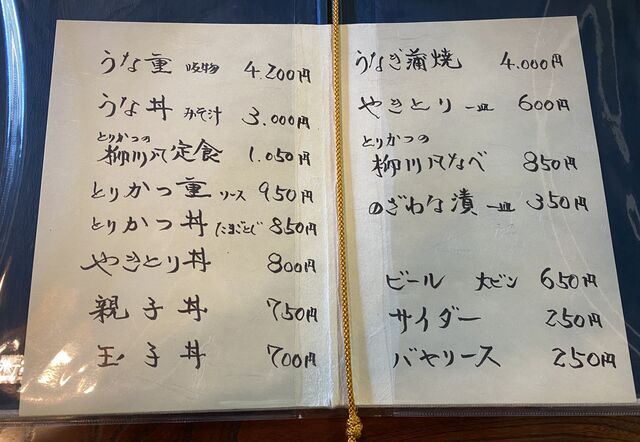 うな重 吸物 4.200円
うな丼 みそ汁 3.000円
とりかつの
柳川風定食 1.050円
とりかつ重 ソース 950円
とりかつ丼 たまごとじ 850円
やきとり丼 800円
親子丼 750円
玉子丼 700円
うなぎ蒲焼 4.000円
やきとり 一皿 600円
とりかつの
柳川風なべ 850円
のざわな漬 一皿 350円
ビール 大ビン 650円
サイダー 250円
バヤリース 250円